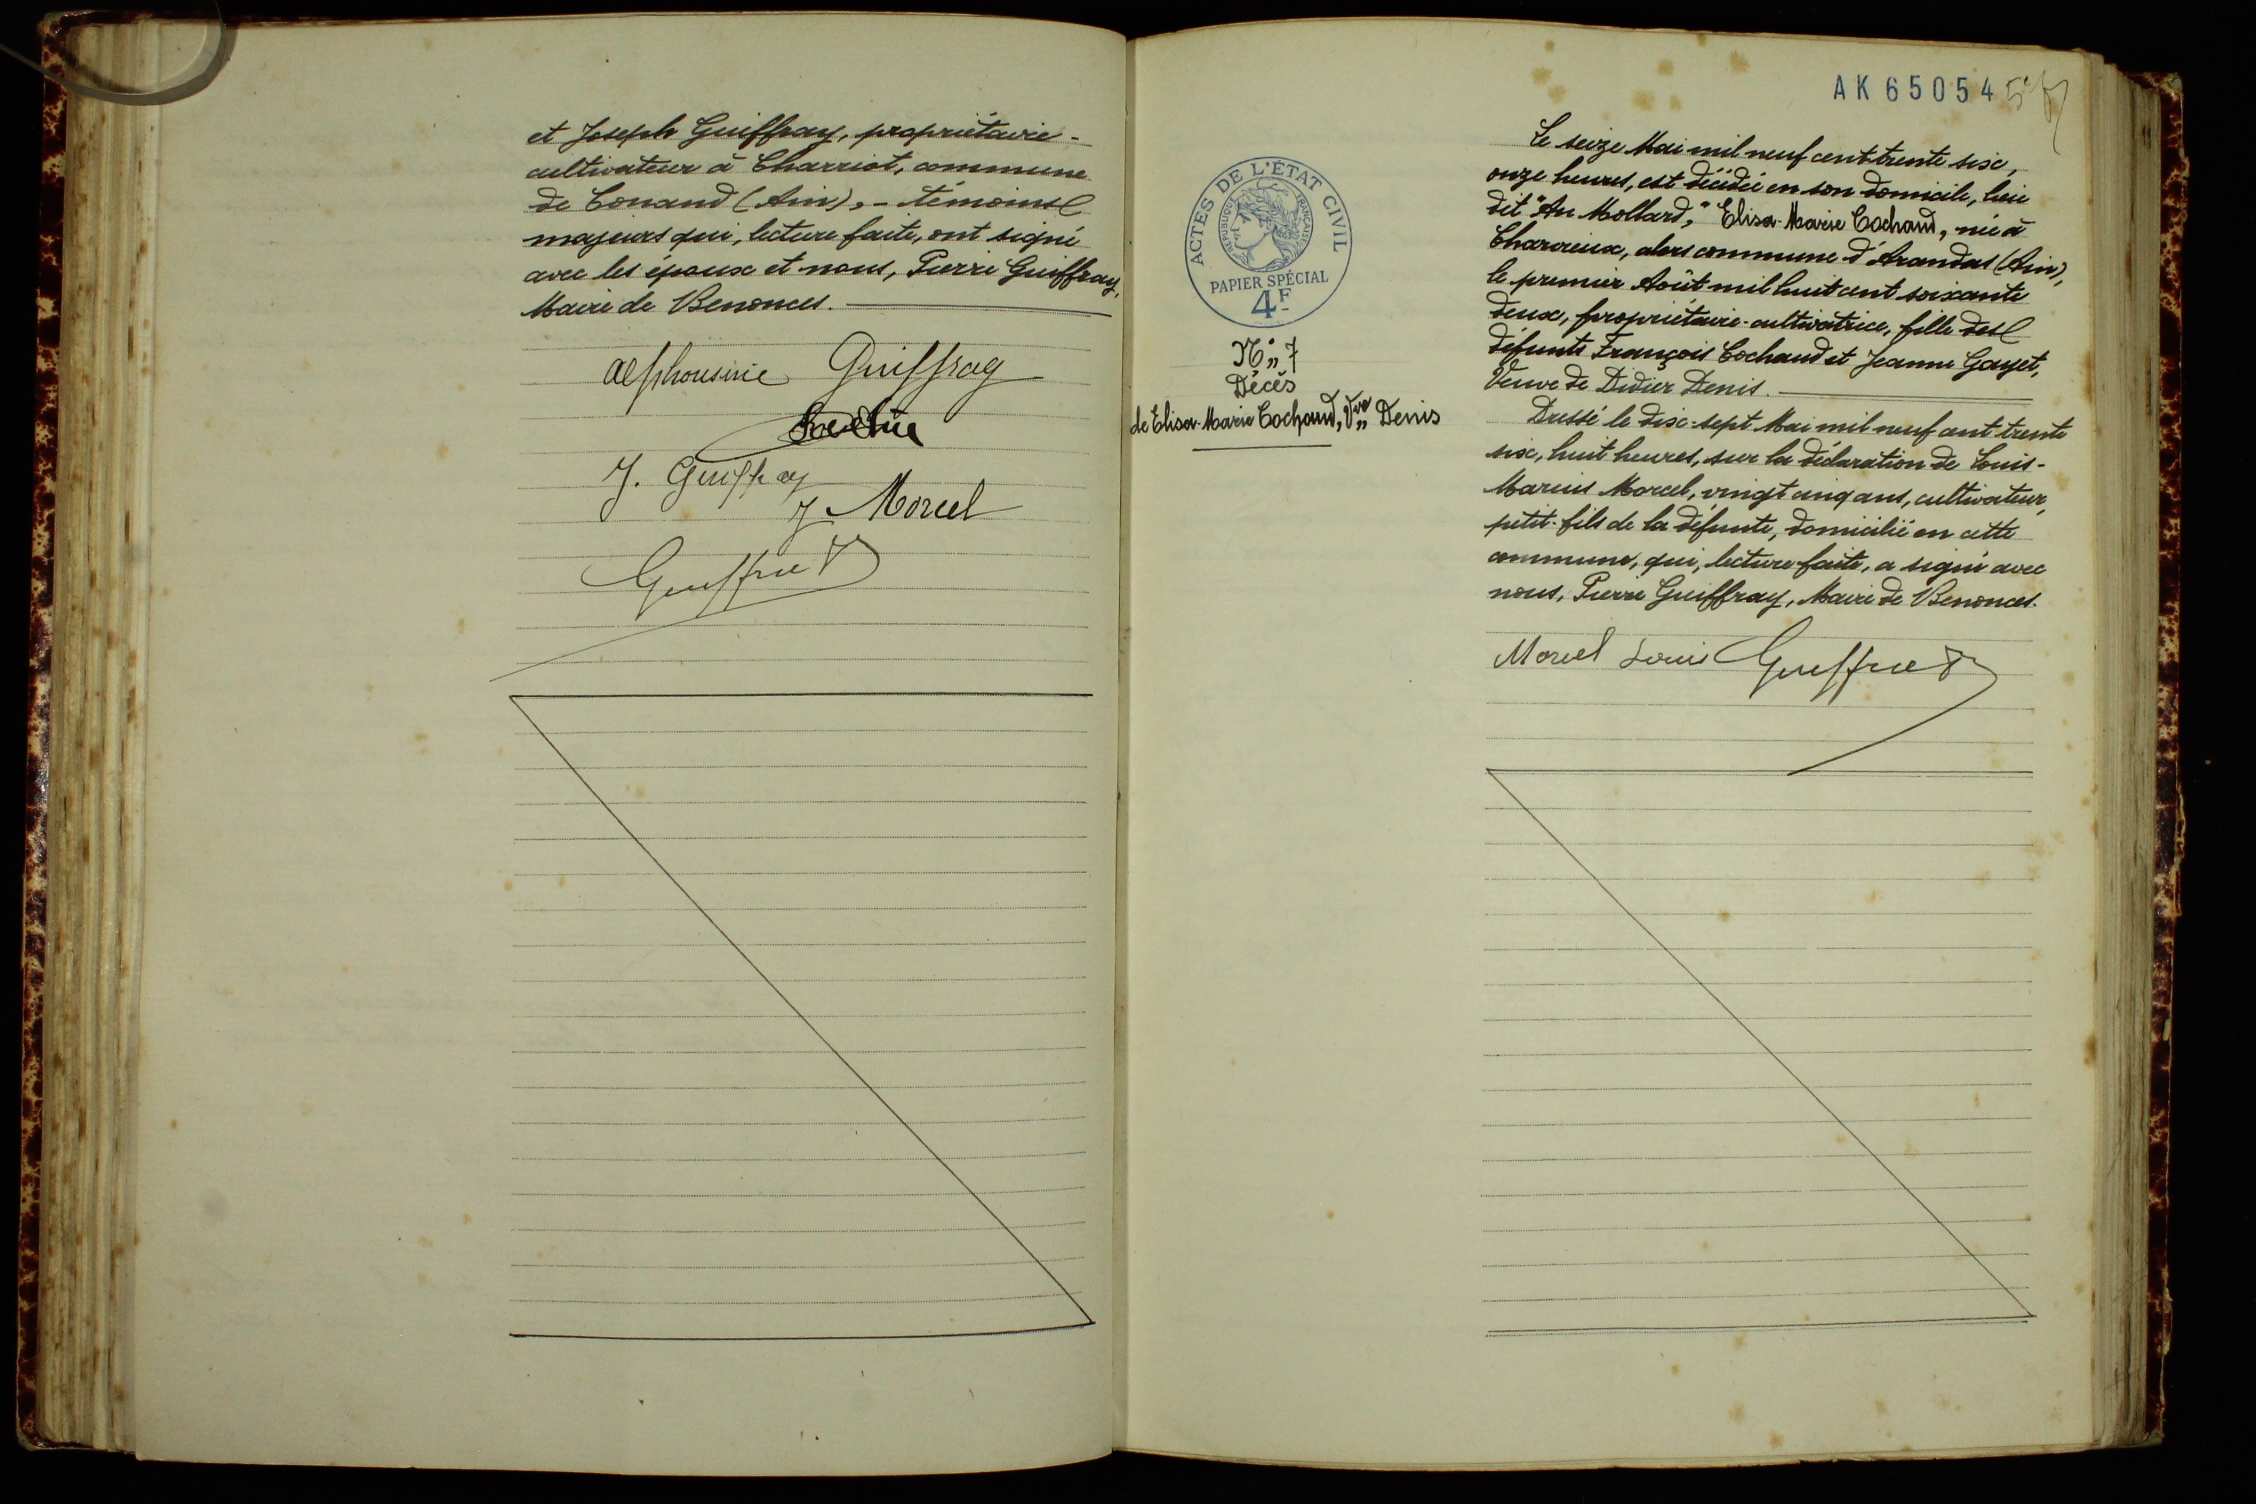 et Joseph Guiffray, propriétaire-
cultivateur à Charriot, commune
de Conand (Ain), - témoins
majeurs qui, lecture faite, ont signé
avec les époux et nous, Pierre Guiffray,
Maire de Benonces.
Alphonsine Guiffray
J. Guiffray
J Morel
Guiffray
AK 65054
Le seize Mai mil neuf cent trente six,
onze heures, est décédée en son domicile, lieu
dit "Au Mollard," Elisa-Marie Cochaud, née à
Charvieux, alors commune d'Arandas (Ain),
le premier Août mil huit cent soixante
deux, propriétaire-cultivatrice, fille des
défunts François Cochaud et Jeanne Gayet,
Veuve de Didier Denis.
Dressé le dix-sept Mai mil neuf cent trente
six, huit heures, sur la déclaration de Louis-
Marius Morel, vingt cinq ans, cultivateur,
petit-fils de la défunte, domicilié en cette
commune, qui, lecture faite, a signé avec
nous, Pierre Guiffray, Maire de Benonces.
Morel Louis Guiffray
ACTES DE L'ÉTAT CIVIL
RÉPUBLIQUE FRANÇAISE
PAPIER SPÉCIAL
4F
N° 7
Décès
de Elisa-Marie Cochaud, Vve Denis